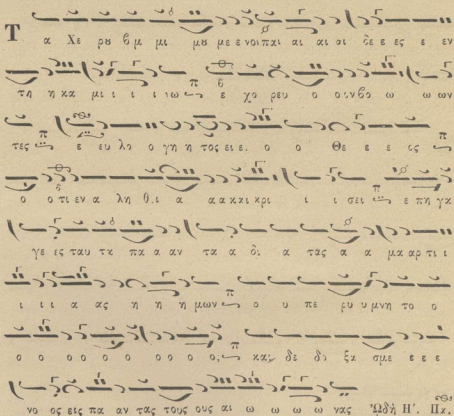 Τ α Χε ρυ βιμ μι μυ με ε νοι παι αι αι αι δε ε ες ε εν
τη η κα μι ι ι ι ιω ε χο ρευ ο ο ω ω ων
τες ε ευ λο ο γη η τος ει ει ο ο Θε ε ε ις
ο ο τι εν α λη θι α α α κ και κρι ι ι σει ε πη γα
γε ες ταυ τα πα α αν τα α δι α τας α α μα αρ τι ι
ι ι ι α ας η η η μων ο υ πε ρυ υ μνη το ο
ο ο ο ο ο ο ο ο και δε δο ξα σμε ε ε ε
νο ος εις πα αν τας τους ους αι ω ω ω ω νας Ὠδὴ Η΄. Πχ.